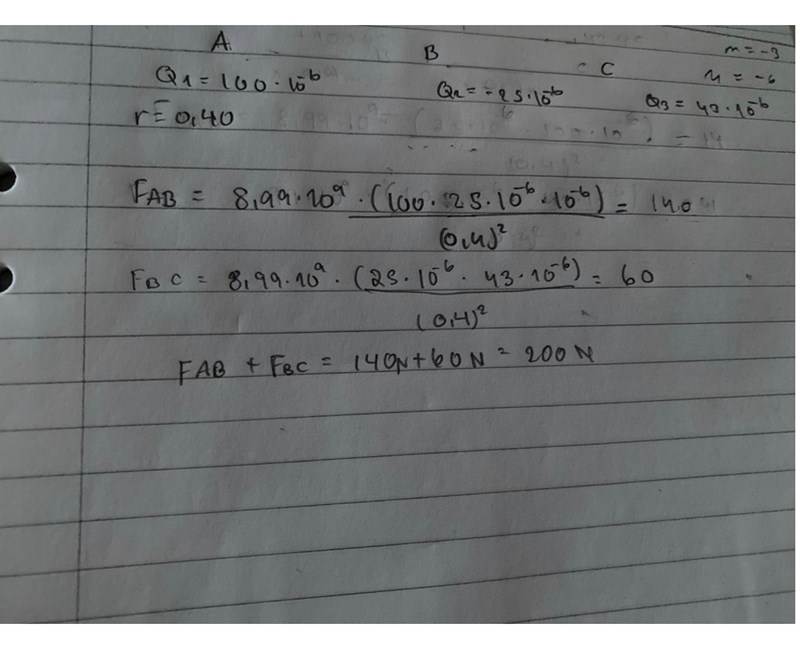 A B C m = -3
Q1 = 100 · 10^-6 Q2 = -25 · 10^-6 Q3 = 43 · 10^-6 μ = -6
r = 0,40
FAB = 8,99 · 10^9 · (100 · 25 · 10^-6 · 10^-6) / (0,4)² = 140
FBC = 8,99 · 10^9 · (25 · 10^-6 · 43 · 10^-6) / (0,4)² = 60
FAB + FBC = 140N + 60N = 200 N